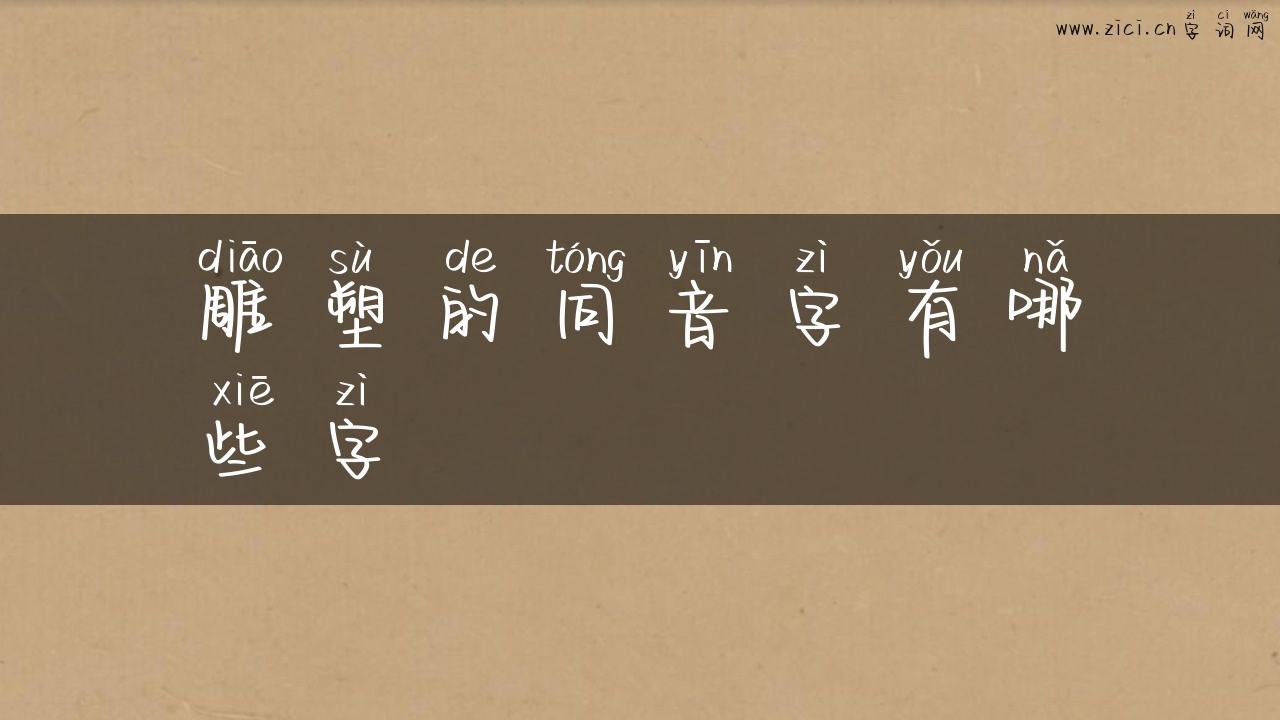 zì cí wǎng
www.zici.cn 字 词 网
diāo sù de tóng yīn zì yǒu nǎ
雕 塑 的 同 音 字 有 哪
xiē zì
些 字